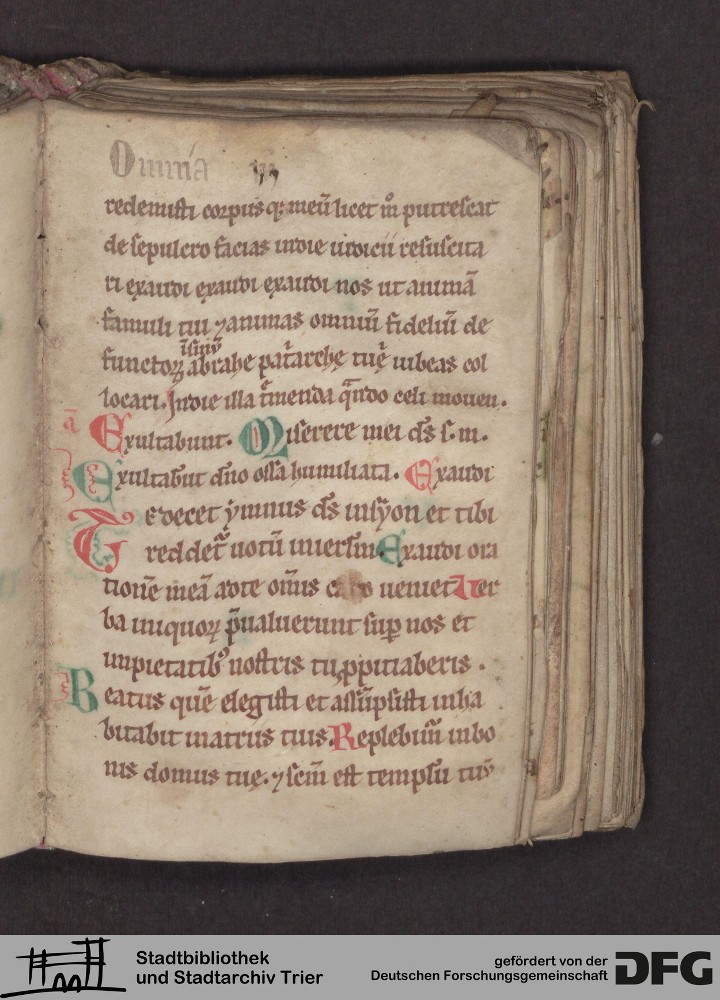 Omnia
redemisti corpusq; meū licet m̊ putrescat
de sepulcro facias indie iudicii resuscita
ri exaudi exaudi exaudi nos ut animā
famuli tui ⁊ animas omniū fideliū de
functoꝝ isinu abrahe pat̄arche tuę iubeas col
locari. Indie illa t̄menda q̄ndo celi mouen.
Exultabunt. Miserere mei ds̄ s. m.
Exultab̄ut dn̄o ossa humiliata. Exaudi
Te decet ẏmnus ds̄ insẏon et tibi
reddet̄ uotū inierłm Exaudi ora
tionē meā adte om̄is caro ueniet Ver
ba iniquoꝝ p̄ualuerunt suꝑ nos et
impietatib⁹ nostris tu ꝓpitiaberis.
Beatus quē elegisti et assūpsisti inha
bitabit inatriis tuis. Replebim̄ inbo
nis domus tuę. ⁊ sc̄m est templū tuū
Stadtbibliothek
und Stadtarchiv Trier
gefördert von der
Deutschen Forschungsgemeinschaft
DFG